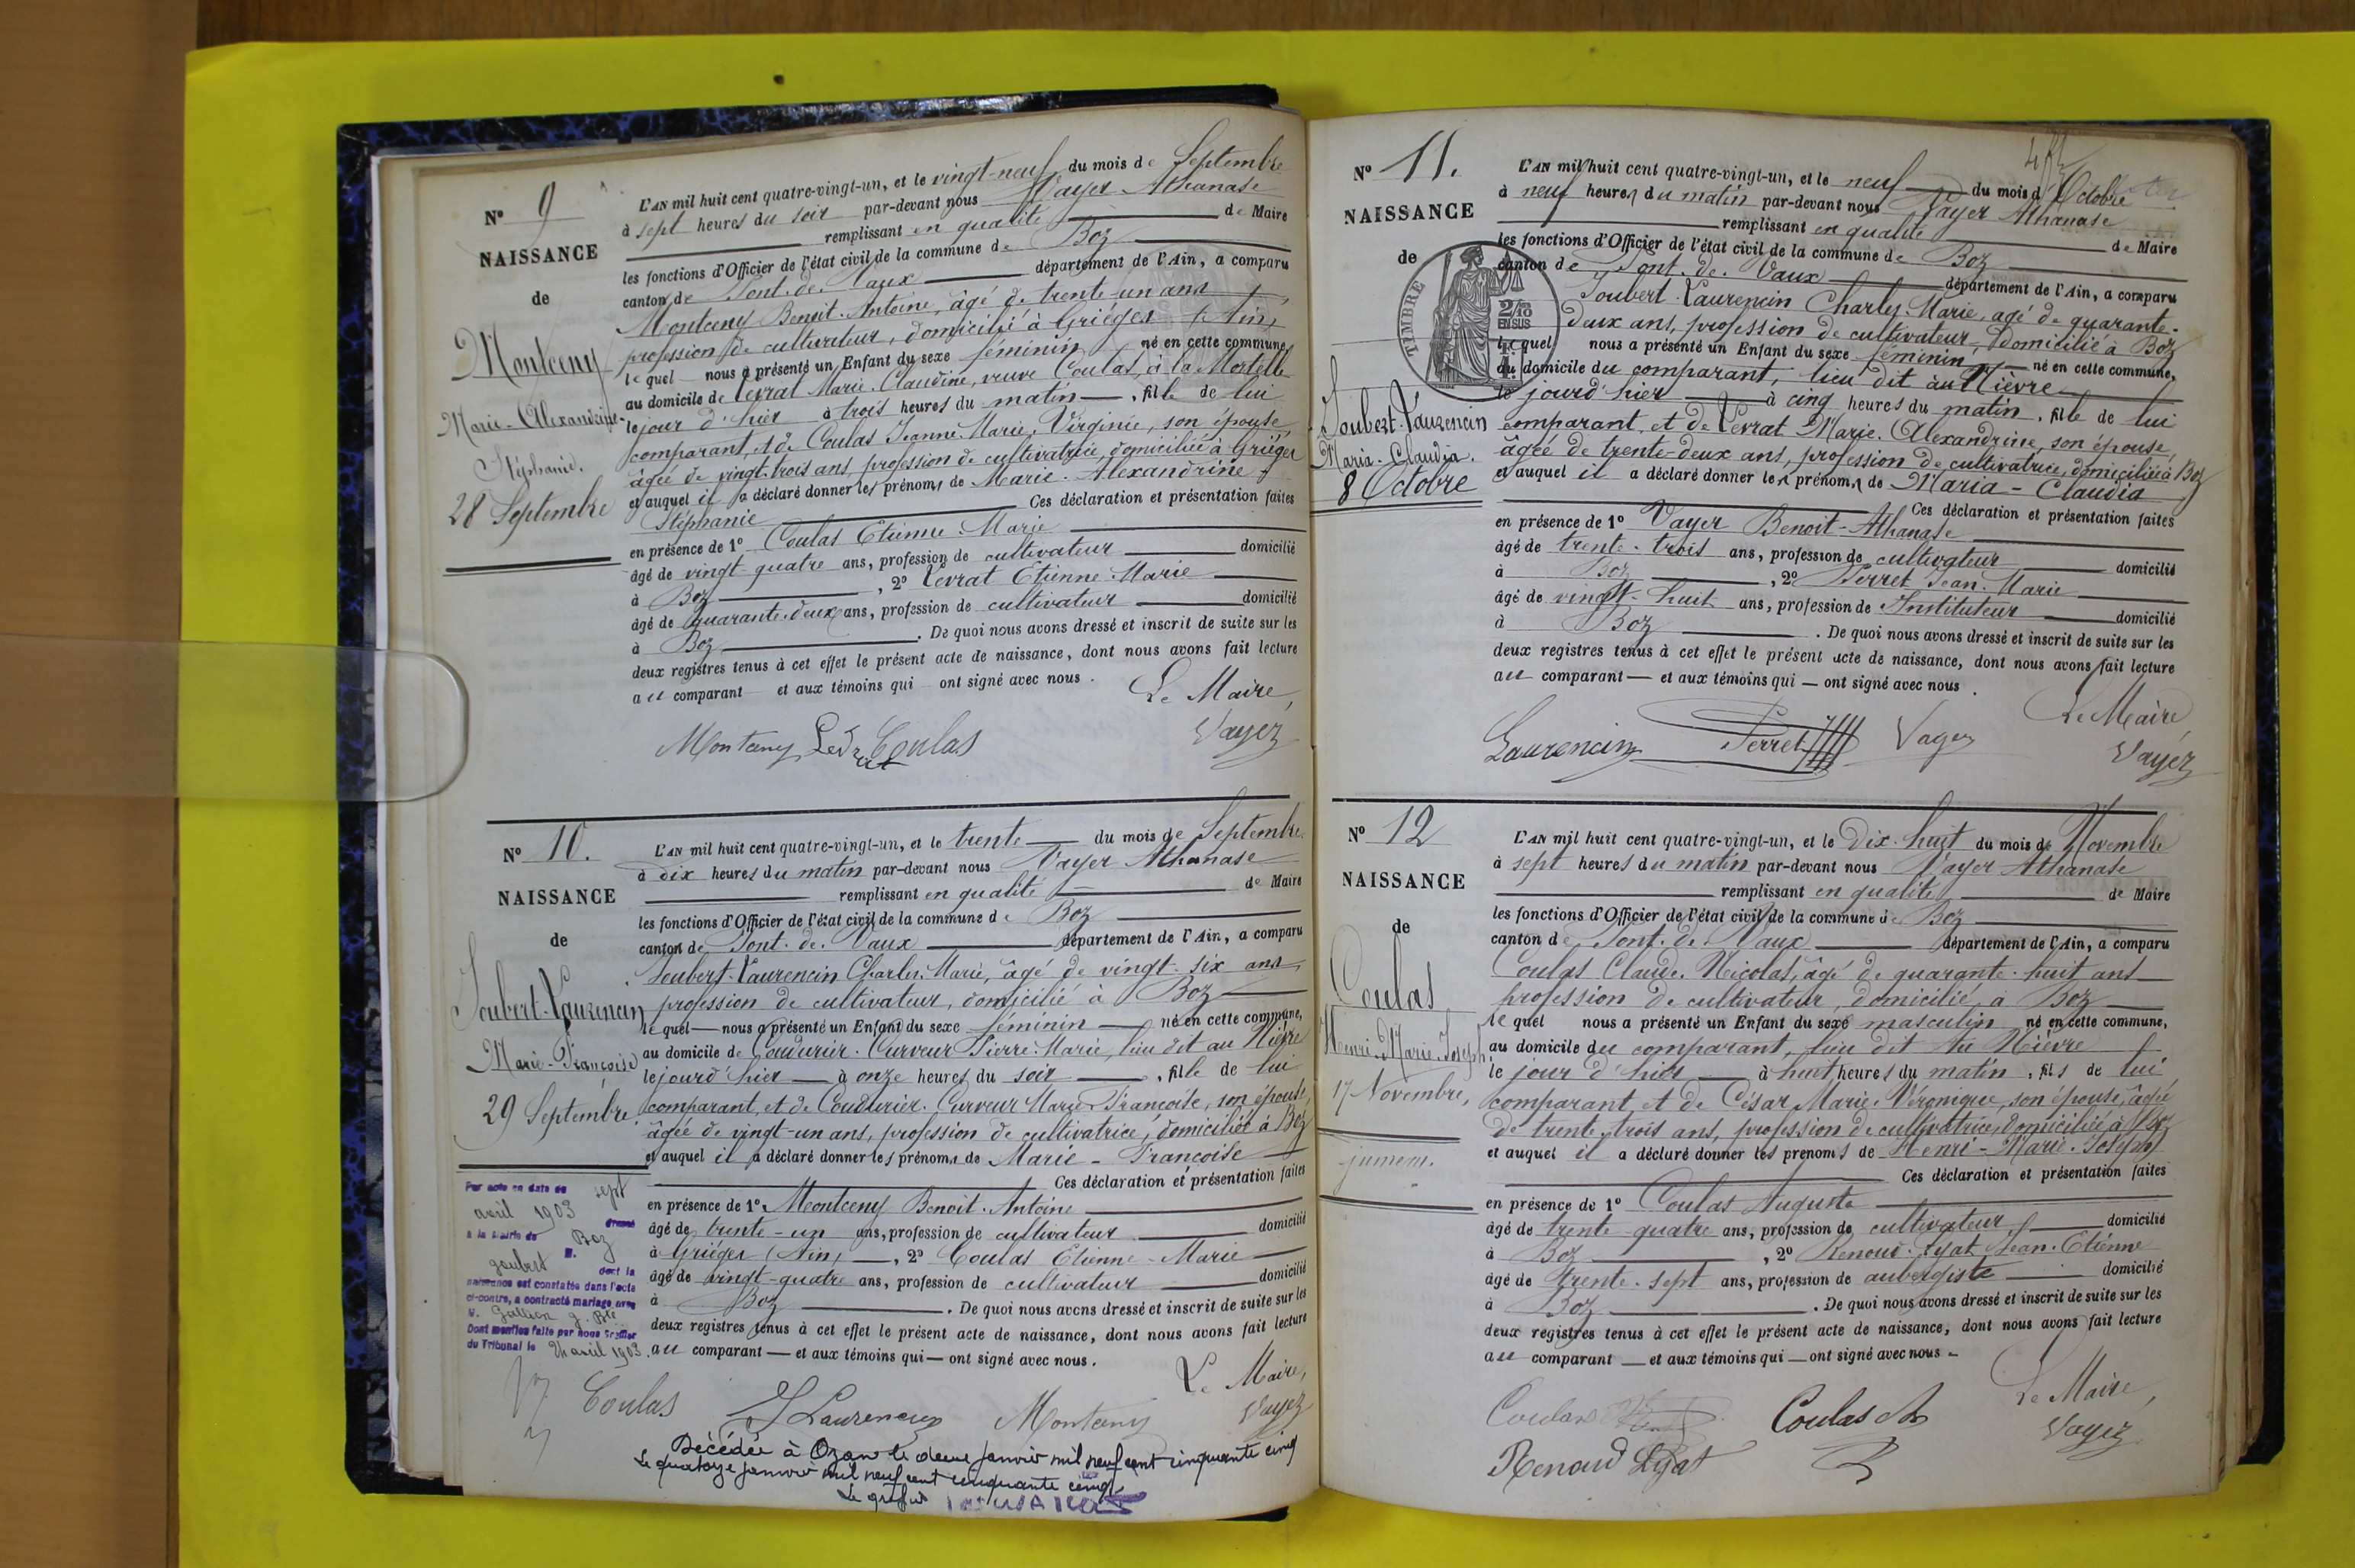 N° 9
NAISSANCE
de
Montceny
Marie-Alexandrine-
Stéphanie.
28 Septembre
L'AN mil huit cent quatre-vingt-un, et le vingt-neuf du mois de Septembre
à sept heures du soir par-devant nous Vayer Athanase
remplissant en qualité de Maire
les fonctions d'Officier de l'état civil de la commune de Boz
canton de Pont-de-Vaux département de l'Ain, a comparu
Montceny Benoit-Antoine, âgé de trente-un ans,
profession de cultivateur, domicilié à Griéges (Ain)
lequel nous a présenté un Enfant du sexe féminin né en cette commune,
au domicile de Levrat Marie-Claudine, veuve Coulas, à la Mortelle
le jour d'hier à trois heures du matin, fille de lui
comparant, et de Coulas Jeanne-Marie-Virginie, son épouse,
âgée de vingt-trois ans, profession de cultivatrice, domiciliée à Griéges
et auquel il a déclaré donner les prénoms de Marie-Alexandrine-
Stéphanie Ces déclaration et présentation faites
en présence de 1° Coulas Etienne-Marie
âgé de vingt-quatre ans, profession de cultivateur domicilié
à Boz, 2° Levrat Etienne-Marie
âgé de quarante-deux ans, profession de cultivateur domicilié
à Boz. De quoi nous avons dressé et inscrit de suite sur les
deux registres tenus à cet effet le présent acte de naissance, dont nous avons fait lecture
au comparant et aux témoins qui ont signé avec nous.
Le Maire,
Montceny Levrat Coulas Vayer
N° 10.
NAISSANCE
de
Joubert-Laurencin
Marie-Françoise
29 Septembre.
L'AN mil huit cent quatre-vingt-un, et le trente du mois de Septembre
à dix heures du matin par-devant nous Vayer Athanase
remplissant en qualité de Maire
les fonctions d'Officier de l'état civil de la commune de Boz
canton de Pont-de-Vaux département de l'Ain, a comparu
Joubert-Laurencin Charles-Marie, âgé de vingt-six ans,
profession de cultivateur, domicilié à Boz
lequel — nous a présenté un Enfant du sexe féminin — né en cette commune,
au domicile de Coudurier-Curveur Pierre-Marie, lieu dit au Nièvre
le jour d'hier — à onze heures du soir, fille de lui
comparant, et de Coudurier-Curveur Marie-Françoise, son épouse,
âgée de vingt-un ans, profession de cultivatrice, domiciliée à Boz
et auquel il a déclaré donner les prénoms de Marie-Françoise
Ces déclaration et présentation faites
en présence de 1° Montceny Benoit-Antoine
âgé de trente-un ans, profession de cultivateur domicilié
à Griéges (Ain), 2° Coulas Etienne-Marie
âgé de vingt-quatre ans, profession de cultivateur domicilié
à Boz. De quoi nous avons dressé et inscrit de suite sur les
deux registres tenus à cet effet le présent acte de naissance, dont nous avons fait lecture
au comparant — et aux témoins qui — ont signé avec nous.
Par acte en date du sept
avril 1903 dressé
à la Mairie de Boz
M. Joubert
dont la
naissance est constatée dans l'acte
ci-contre, a contracté mariage avec
M. Gallion J. Bte
Dont mention faite par nous Greffier
du Tribunal le 24 avril 1903.
Le Maire,
Coulas J Laurencin Montceny Vayer
Décédée à Ozan le douze janvier mil neuf cent cinquante cinq
Le quatorze janvier mil neuf cent cinquante cinq
Le greffier
N° 11.
NAISSANCE
de
TIMBRE
2/10
EN SUS
Joubert-Laurencin
Maria-Claudia.
8 Octobre
L'AN mil huit cent quatre-vingt-un, et le neuf du mois d'Octobre
à neuf heures du matin par-devant nous Vayer Athanase
remplissant en qualité de Maire
les fonctions d'Officier de l'état civil de la commune de Boz
canton de Pont-de-Vaux département de l'Ain, a comparu
Joubert-Laurencin Charles-Marie, âgé de quarante-
deux ans, profession de cultivateur, domicilié à Boz
lequel nous a présenté un Enfant du sexe féminin — né en cette commune,
au domicile du comparant, lieu dit au Nièvre
le jour d'hier — à cinq heures du matin, fille de lui
comparant, et de Levrat Marie-Alexandrine, son épouse,
âgée de trente-deux ans, profession de cultivatrice, domiciliée à Boz
et auquel il a déclaré donner les prénoms de Maria-Claudia
Ces déclaration et présentation faites
en présence de 1° Vayer Benoit-Athanase
âgé de trente-trois ans, profession de cultivateur domicilié
à Boz, 2° Perret Jean-Marie
âgé de vingt-huit ans, profession de Instituteur domicilié
à Boz. De quoi nous avons dressé et inscrit de suite sur les
deux registres tenus à cet effet le présent acte de naissance, dont nous avons fait lecture
au comparant — et aux témoins qui — ont signé avec nous.
Le Maire,
Laurencin Perret Vayer Vayer
N° 12
NAISSANCE
de
Coulas
Henri-Marie-Joseph.
17 Novembre,
L'AN mil huit cent quatre-vingt-un, et le Dix-huit du mois de Novembre
à sept heures du matin par-devant nous Vayer Athanase
remplissant en qualité de Maire
les fonctions d'Officier de l'état civil de la commune de Boz
canton de Pont-de-Vaux département de l'Ain, a comparu
Coulas Claude-Nicolas, âgé de quarante-huit ans
profession de cultivateur, domicilié à Boz
lequel nous a présenté un Enfant du sexe masculin né en cette commune,
au domicile du comparant, lieu dit au Nièvre
le jour d'hier — à huit heures du matin, fils de lui
comparant, et de César Marie-Véronique, son épouse, âgée
de trente-trois ans, profession de cultivatrice, domiciliée à Boz
et auquel il a déclaré donner les prénoms de Henri-Marie-Joseph
Ces déclaration et présentation faites
en présence de 1° Coulas Auguste
âgé de trente-quatre ans, profession de cultivateur domicilié
à Boz, 2° Renoud-Lyat Jean-Etienne
âgé de trente-sept ans, profession de aubergiste domicilié
à Boz. De quoi nous avons dressé et inscrit de suite sur les
deux registres tenus à cet effet le présent acte de naissance, dont nous avons fait lecture
au comparant — et aux témoins qui — ont signé avec nous.
Le Maire,
Coulas Coulas Vayer
Renoud Lyat